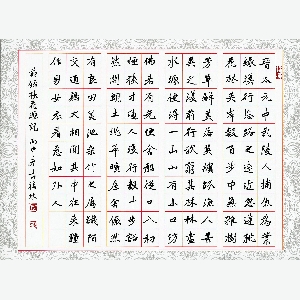 晋太元中武陵人捕鱼為業
缘溪行忘路之遠近忽逢桃
花林夹岸數百步中無雜樹
芳草鲜美落英缤纷渔人甚
異之復前行欲窮其林林盡
水源便得一山山有小口
彿若有光便舍船從口入初
極狭才通人復行數十步豁
然開朗土地平曠屋舍儼然
有良田美池桑竹之属阡陌
交通雞犬相聞其中往来種
作男女衣着悉如外人
節録桃花源記 丙申年